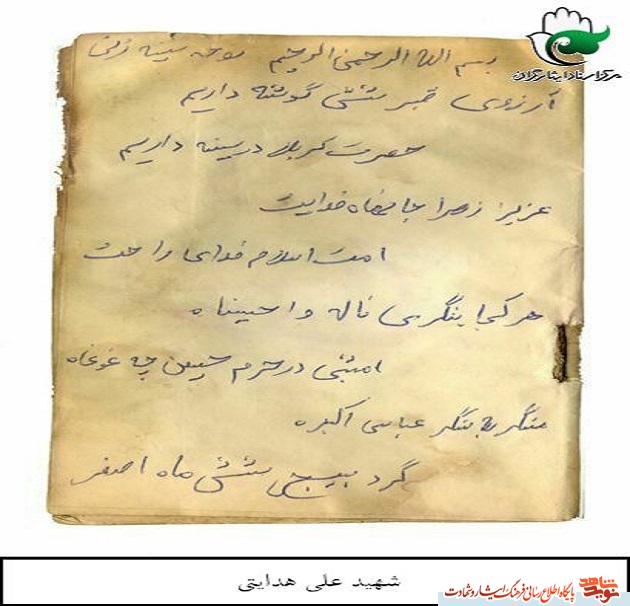 مرکز اسناد ایثارگران
بسم الله الرحمن الرحیم نوحه سینه زنی
آرزوی قبر شش گوشه داریم
حسرت کربلا در سینه داریم
عزیز زهرا جانها فدایت
امت اسلام فدای راهت
هر کجا بنگری ناله وا حسیناه
امشبی در حرم حسین چه غوغاه
بنگر عباس اکبره
گرد بسیجی شش ماه اصغر
شهید علی هدایتی
نوید شاهد پایگاه اطلاع رسانی فرهنگ ایثار و شهادت